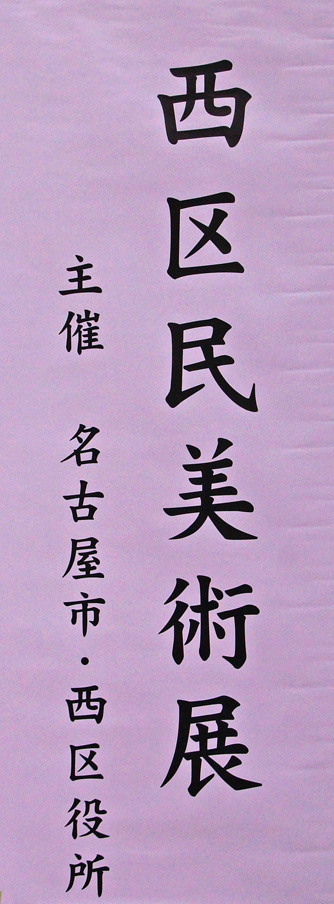 西区民美術展
主催 名古屋市・西区役所